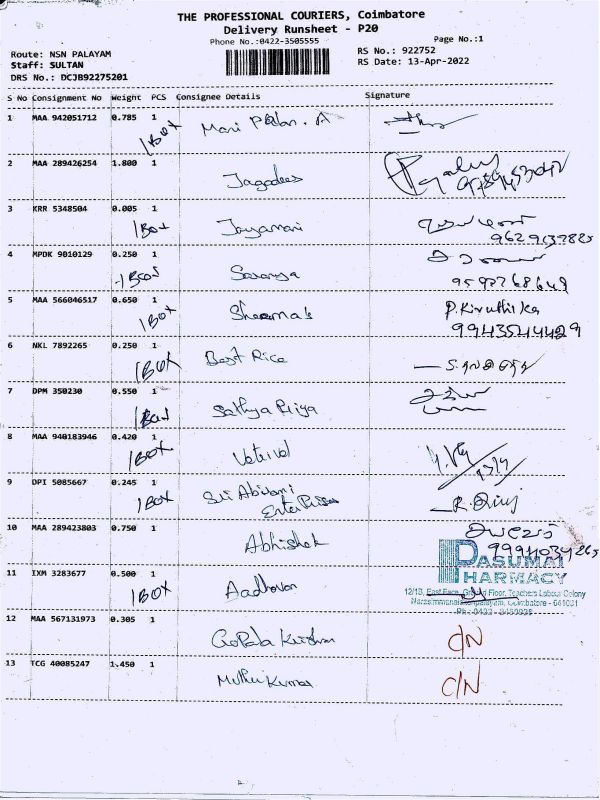 THE PROFESSIONAL COURIERS, Coimbatore
Delivery Runsheet - P20
Phone No.:0422-3505555
Page No.:1
Route: NSN PALAYAM
RS No.: 922752
Staff: SULTAN
RS Date: 13-Apr-2022
DRS No.: DCJB92275201
S No Consignment No Weight PCS Consignee Details Signature
1 MAA 942051712 0.785 1
1 BOX
2 MAA 289426254 1.800 1 Jagadees
3 KRR 5348504 0.005 1 Jayamani
1 Box
4 MPDK 9010129 0.250 1 Saranya
1 Box
5 MAA 566046517 0.650 1 P. Kiruthika
1 Box 9943544429
6 NKL 7892265 0.250 1 Best Rice
1 BOX
7 DPM 350230 0.550 1 Sathya Priya
1 Box
8 MAA 940183946 0.420 1 Vetrivel
1 BOX
9 DPI 5085667 0.245 1 Sri Abirami
1 BOX
10 MAA 289423803 0.750 1 Abhishek
PASUMAI
PHARMACY
11 IXM 3283677 0.500 1 Aadhavan
1 BOX
12/1B, East Face, Ground Floor, Teachers Labour Colony
Coimbatore - 641031
12 MAA 567131973 0.305 1 Gopala Krishnan C/N
13 TCG 40085247 1.450 1 Muthu Kumar C/N